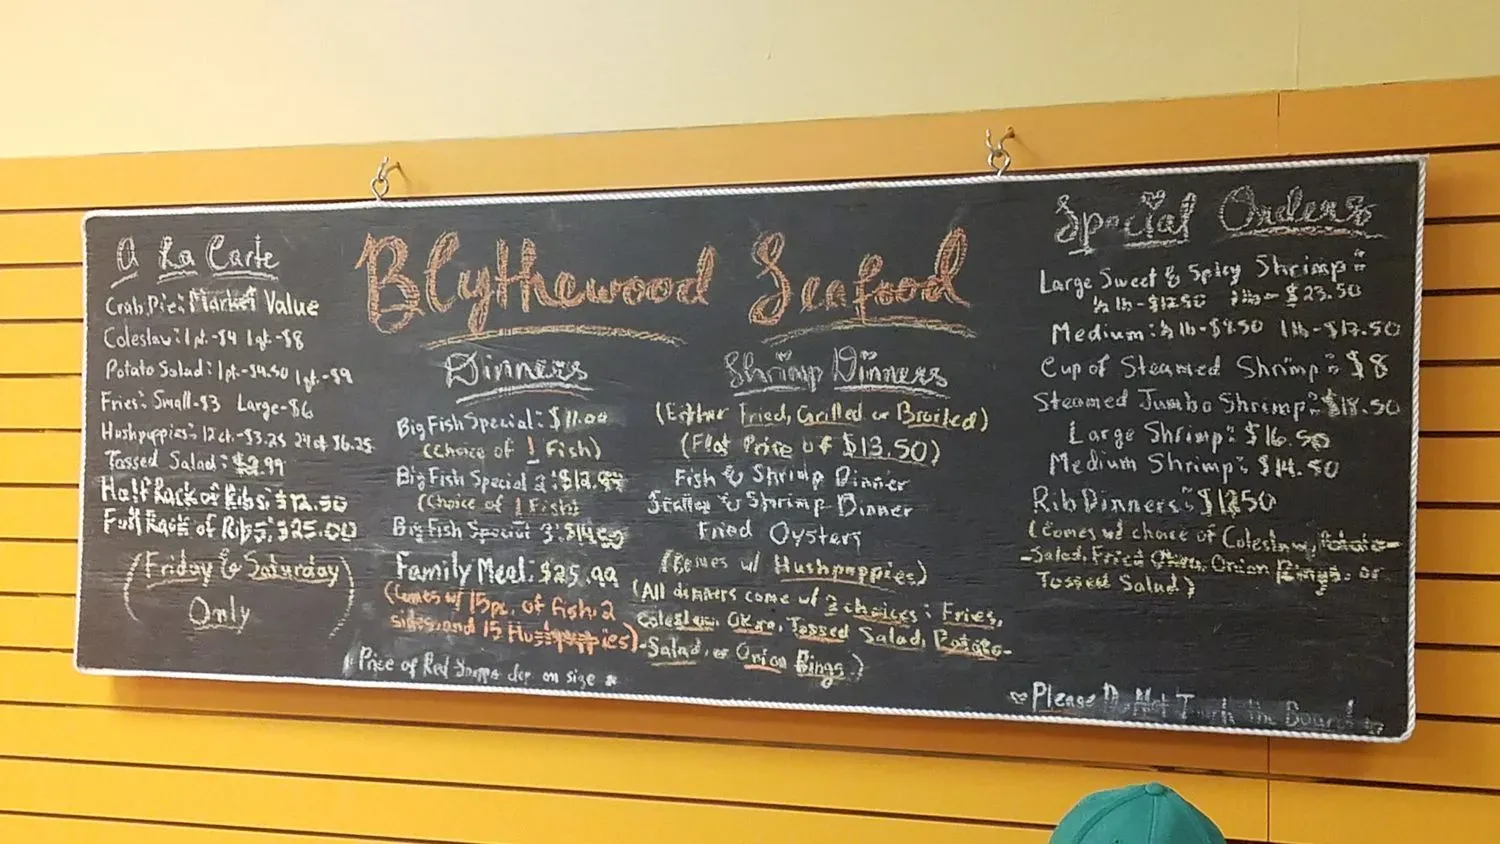 Blythewood Seafood
A La Carte
Crab Pie: Market Value
Coleslaw: 1 pt.-$4 1 qt.-$8
Potato Salad: 1 pt.-$4.50 1 qt.-$9
Fries: Small-$3 Large-$6
Hushpuppies: 12 ct.-$3.25 24 ct $6.25
Tossed Salad: $2.99
Half Rack of Ribs: $12.50
Full Rack of Ribs: $25.00
(Friday & Saturday
Only)
Dinners
Big Fish Special: $11.00
(Choice of 1 Fish)
Big Fish Special 2: $12.99
(Choice of 1 Fish)
Big Fish Special 3:
Family Meal: $25.99
(Comes w/ 15pc. of fish, 2
sides, and 15 Hushpuppies)
Price of Red Snapper dep on size *
Shrimp Dinners
(Either Fried, Grilled or Broiled)
(Flat Price of $13.50)
Fish & Shrimp Dinner
& Shrimp Dinner
Fried Oysters
(Comes w/ Hushpuppies)
(All dinners come w/ 2 choices: Fries,
Coleslaw, Okra, Tossed Salad, Potato-
-Salad, or Onion Rings.)
Special Orders
Large Sweet & Spicy Shrimp:
½ lb-$12.50 1 lb-$23.50
Medium: ½ lb-$9.50 1 lb-$17.50
Cup of Steamed Shrimp: $8
Steamed Jumbo Shrimp: $18.50
Large Shrimp: $16.50
Medium Shrimp: $14.50
Rib Dinners: $12.50
(Comes w/ choice of Coleslaw, Potato-
-Salad, Fried Okra, Onion Rings, or
Tossed Salad)
Please Do Not Touch the Board